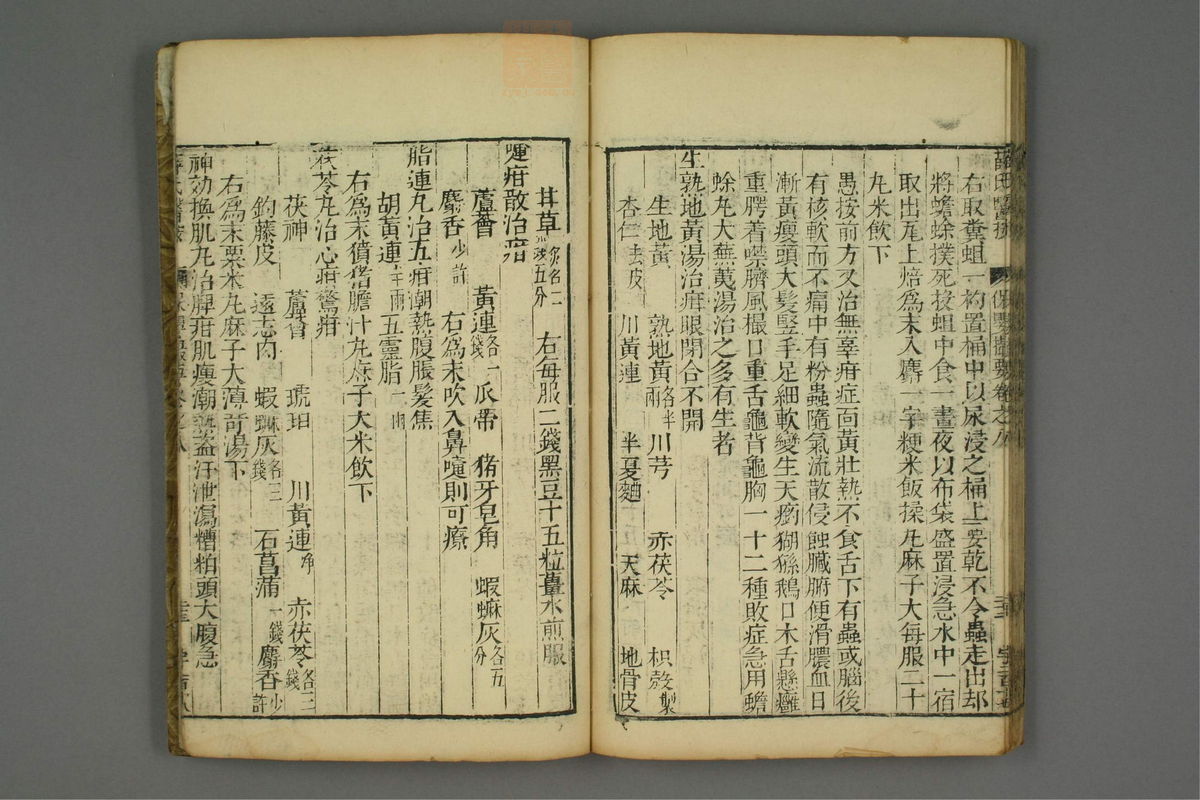 薛氏醫按
保嬰撮要卷之八
右取糞蛆一杓置桶中以尿浸之桶上要乾不令蟲走出却
將蟾蜍撲死投蛆中食一晝夜以布袋盛置浸急水中一宿
取出瓦上焙爲末入麝一字粳米飯揉丸麻子大每服二十
丸米飲下
愚按前方又治無辜疳症面黃壯熱不食舌下有蟲或腦後
有核軟而不痛中有粉蟲隨氣流散侵蝕臟腑便滑膿血日
漸黃瘦頭大髮竪手足細軟變生天瘹猢猻鵝口木舌懸癰
重腭着噤臍風撮口重舌龜背龜胸一十二種敗症急用蟾
蜍丸大蕪荑湯治之多有生者
生熟地黃湯治疳眼閉合不開
生地黃 熟地黃各半兩 川芎 赤茯苓 枳殼製
杏仁去皮 川黃連 半夏麯 天麻 地骨皮
甘草各二錢五分 右每服二錢黑豆十五粒薑水煎服
嚏疳散治疳
蘆薈 黃連各一錢 瓜蒂 猪牙皂角 蝦蟆灰各五分
麝香少許 右爲末吹入鼻嚏則可療
脂連丸治五疳潮熱腹脹髮焦
胡黃連半兩 五靈脂一兩
右爲末獖猪膽汁丸麻子大米飲下
茯苓丸治心疳驚疳
茯神 蘆薈 琥珀 川黃連净 赤茯苓各三錢
鈎藤皮 遠志肉 蝦蟆灰各二錢 石菖蒲一錢 麝香少許
右爲末粟米丸麻子大薄荷湯下
神効換肌丸治脾疳肌瘦潮熱盗汗泄瀉糟粕頭大腹急